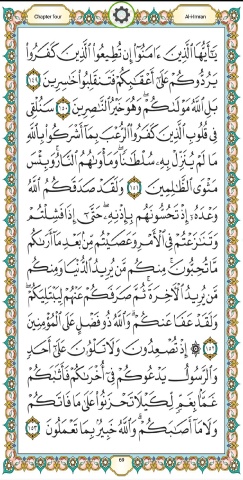 Chapter four
Al-Imran
يَٰٓأَيُّهَا ٱلَّذِينَ ءَامَنُوٓاْ إِن تُطِيعُواْ ٱلَّذِينَ كَفَرُواْ
يَرُدُّوكُمْ عَلَىٰٓ أَعْقَٰبِكُمْ فَتَنقَلِبُواْ خَٰسِرِينَ ١٤٩
بَلِ ٱللَّهُ مَوْلَىٰكُمْ وَهُوَ خَيْرُ ٱلنَّٰصِرِينَ ١٥٠ سَنُلْقِى
فِى قُلُوبِ ٱلَّذِينَ كَفَرُواْ ٱلرُّعْبَ بِمَآ أَشْرَكُواْ بِٱللَّهِ
مَا لَمْ يُنَزِّلْ بِهِۦ سُلْطَٰنًا وَمَأْوَىٰهُمُ ٱلنَّارُ وَبِئْسَ
مَثْوَى ٱلظَّٰلِمِينَ ١٥١ وَلَقَدْ صَدَقَكُمُ ٱللَّهُ
وَعْدَهُۥٓ إِذْ تَحُسُّونَهُم بِإِذْنِهِۦ حَتَّىٰٓ إِذَا فَشِلْتُمْ
وَتَنَٰزَعْتُمْ فِى ٱلْأَمْرِ وَعَصَيْتُم مِّنۢ بَعْدِ مَآ أَرَىٰكُم
مَّا تُحِبُّونَ مِنكُم مَّن يُرِيدُ ٱلدُّنْيَا وَمِنكُم
مَّن يُرِيدُ ٱلْءَاخِرَةَ ثُمَّ صَرَفَكُمْ عَنْهُمْ لِيَبْتَلِيَكُمْ
وَلَقَدْ عَفَا عَنكُمْ وَٱللَّهُ ذُو فَضْلٍ عَلَى ٱلْمُؤْمِنِينَ
١٥٢ ۞ إِذْ تُصْعِدُونَ وَلَا تَلْوُۥنَ عَلَىٰٓ أَحَدٍ
وَٱلرَّسُولُ يَدْعُوكُمْ فِىٓ أُخْرَىٰكُمْ فَأَثَٰبَكُمْ
غَمَّۢا بِغَمٍّ لِّكَيْلَا تَحْزَنُواْ عَلَىٰ مَا فَاتَكُمْ
وَلَا مَآ أَصَٰبَكُمْ وَٱللَّهُ خَبِيرٌۢ بِمَا تَعْمَلُونَ ١٥٣
69